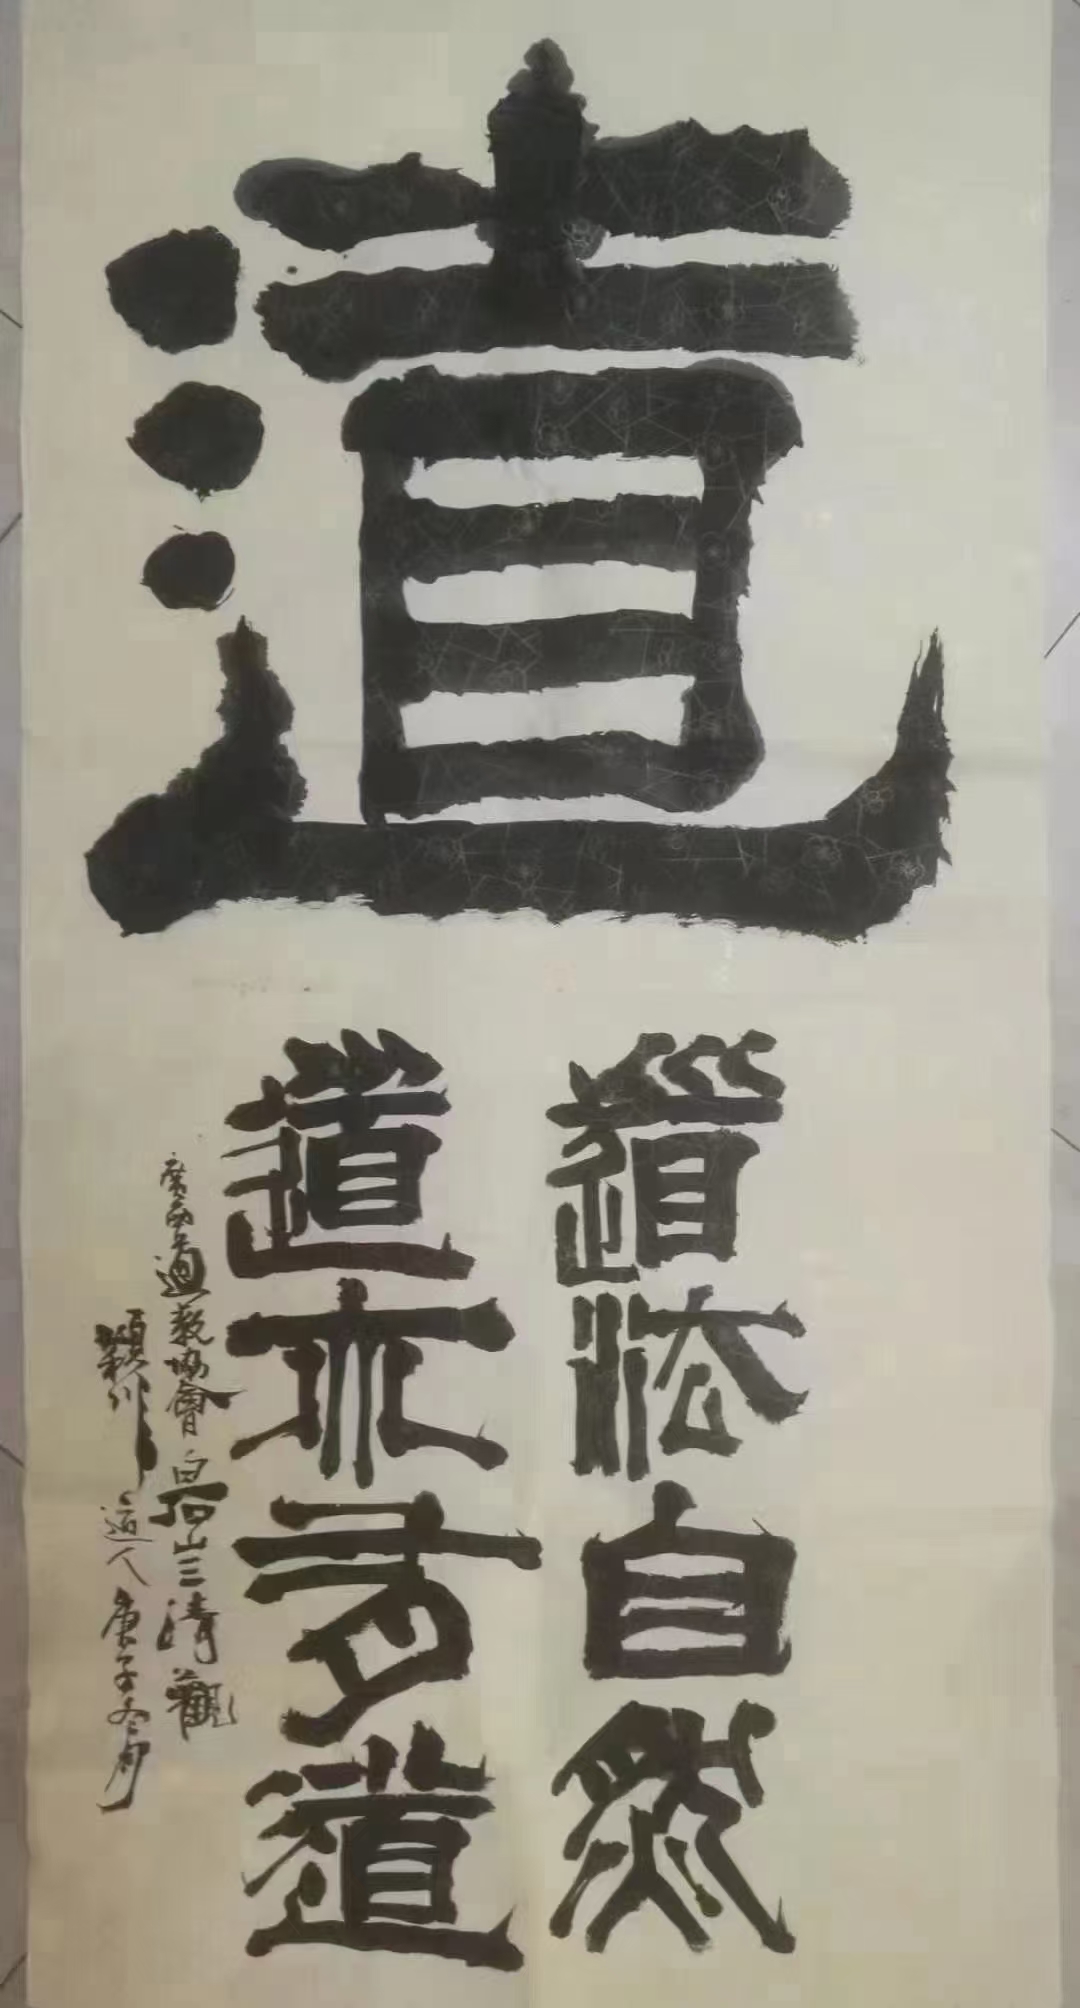 道
道法自然
道亦有道
廣西道教協會白石山三清觀
穎川道人庚子冬月